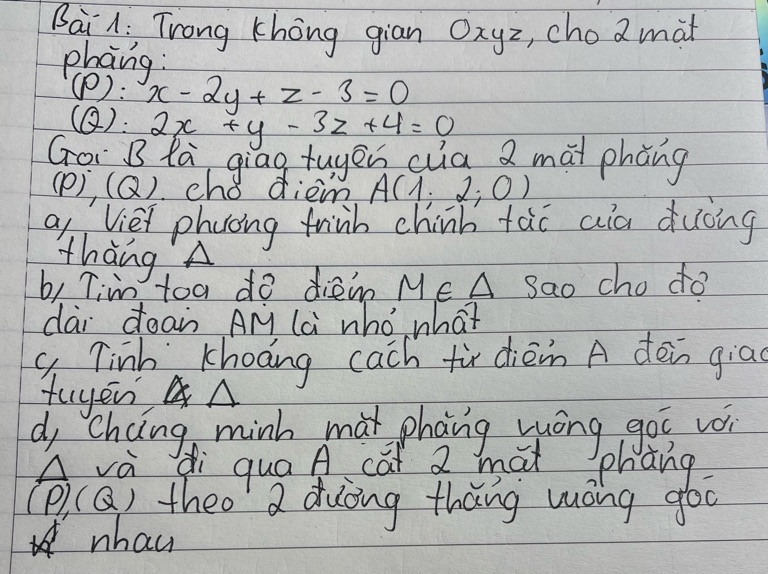 Bài 1: Trong không gian Oxyz, cho 2 mặt
phẳng:
(P): x - 2y + z - 3 = 0
(Q): 2x + y - 3z + 4 = 0
Gọi B là giao tuyến của 2 mặt phẳng
(P), (Q). cho điểm A(1; 2; 0)
a, Viết phương trình chính tắc của đường
thẳng Δ
b, Tìm tọa độ điểm M ∈ Δ sao cho độ
dài đoạn AM là nhỏ nhất
c, Tính khoảng cách từ điểm A đến giao
tuyến Δ
d, Chứng minh mặt phẳng vuông góc với
Δ và đi qua A cắt 2 mặt phẳng
(P), (Q) theo 2 đường thẳng vuông góc
nhau